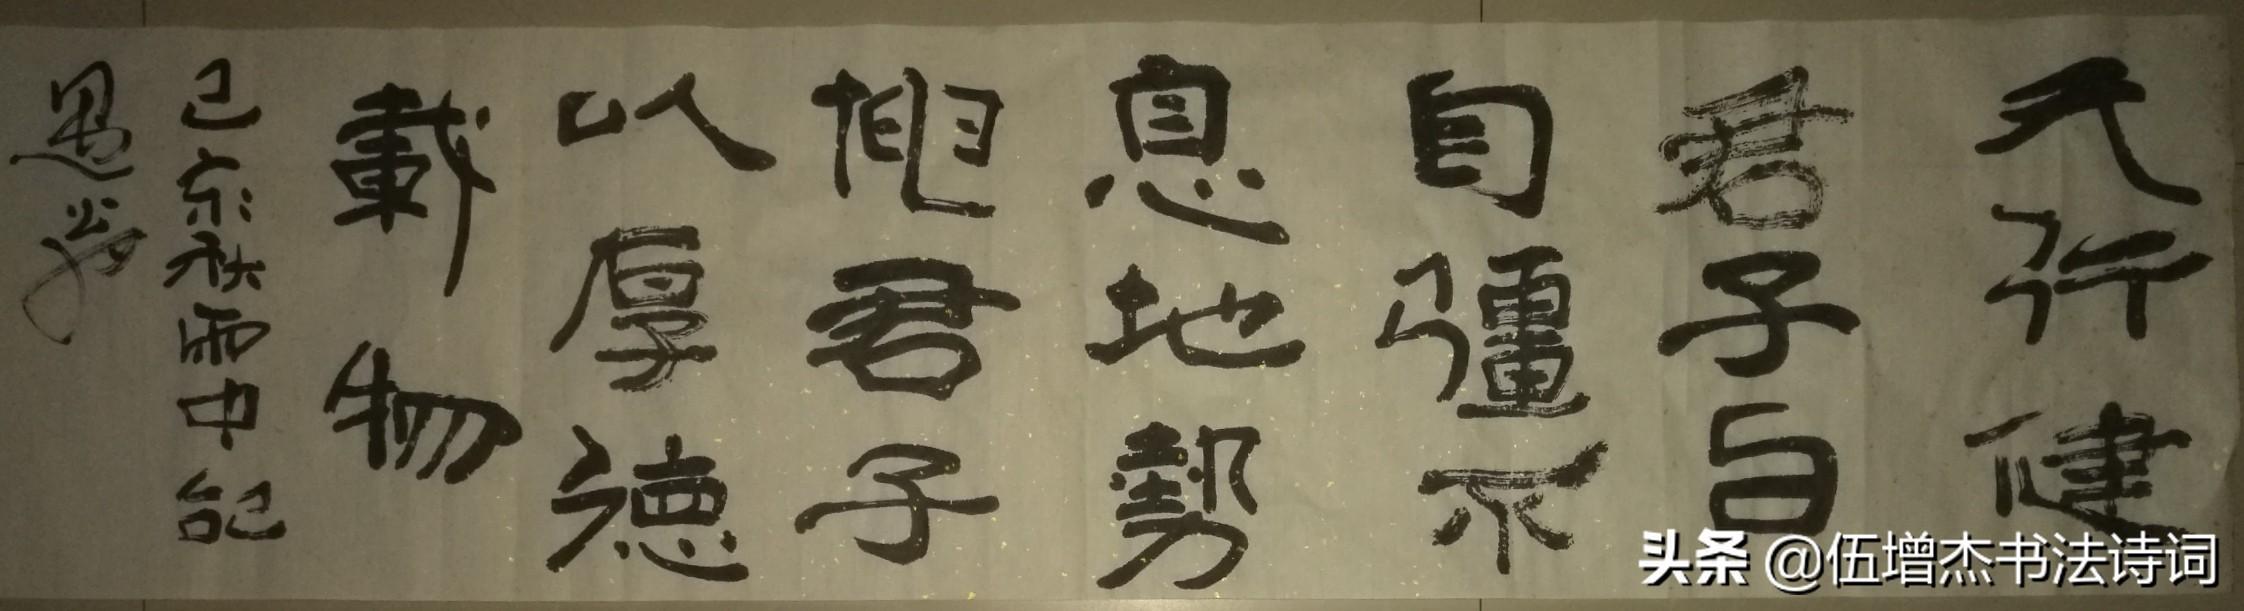 天行健
君子㠯
自彊不
息地勢
君子
以厚德
載物
己亥秋雨中記
愚
头条 @伍增杰书法诗词